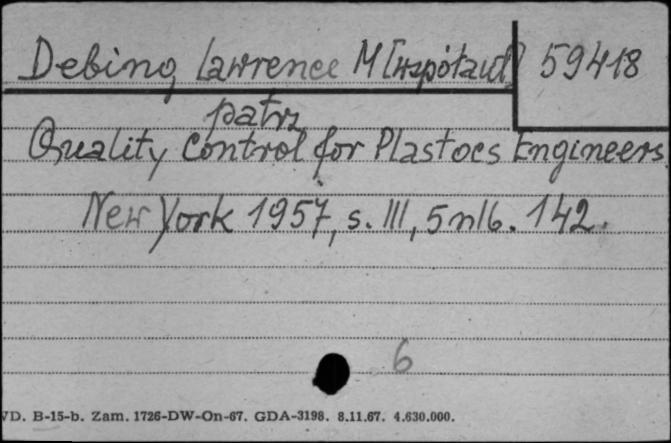 Debing, Lawrence M [współaut] 59418
patrz
Quality Control for Plastocs Engineers
New York 1957, s. III, 5 nlb. 142.
6
VD. B-15-b. Zam. 1726-DW-On-67. GDA-3198. 8.11.67. 4.630.000.